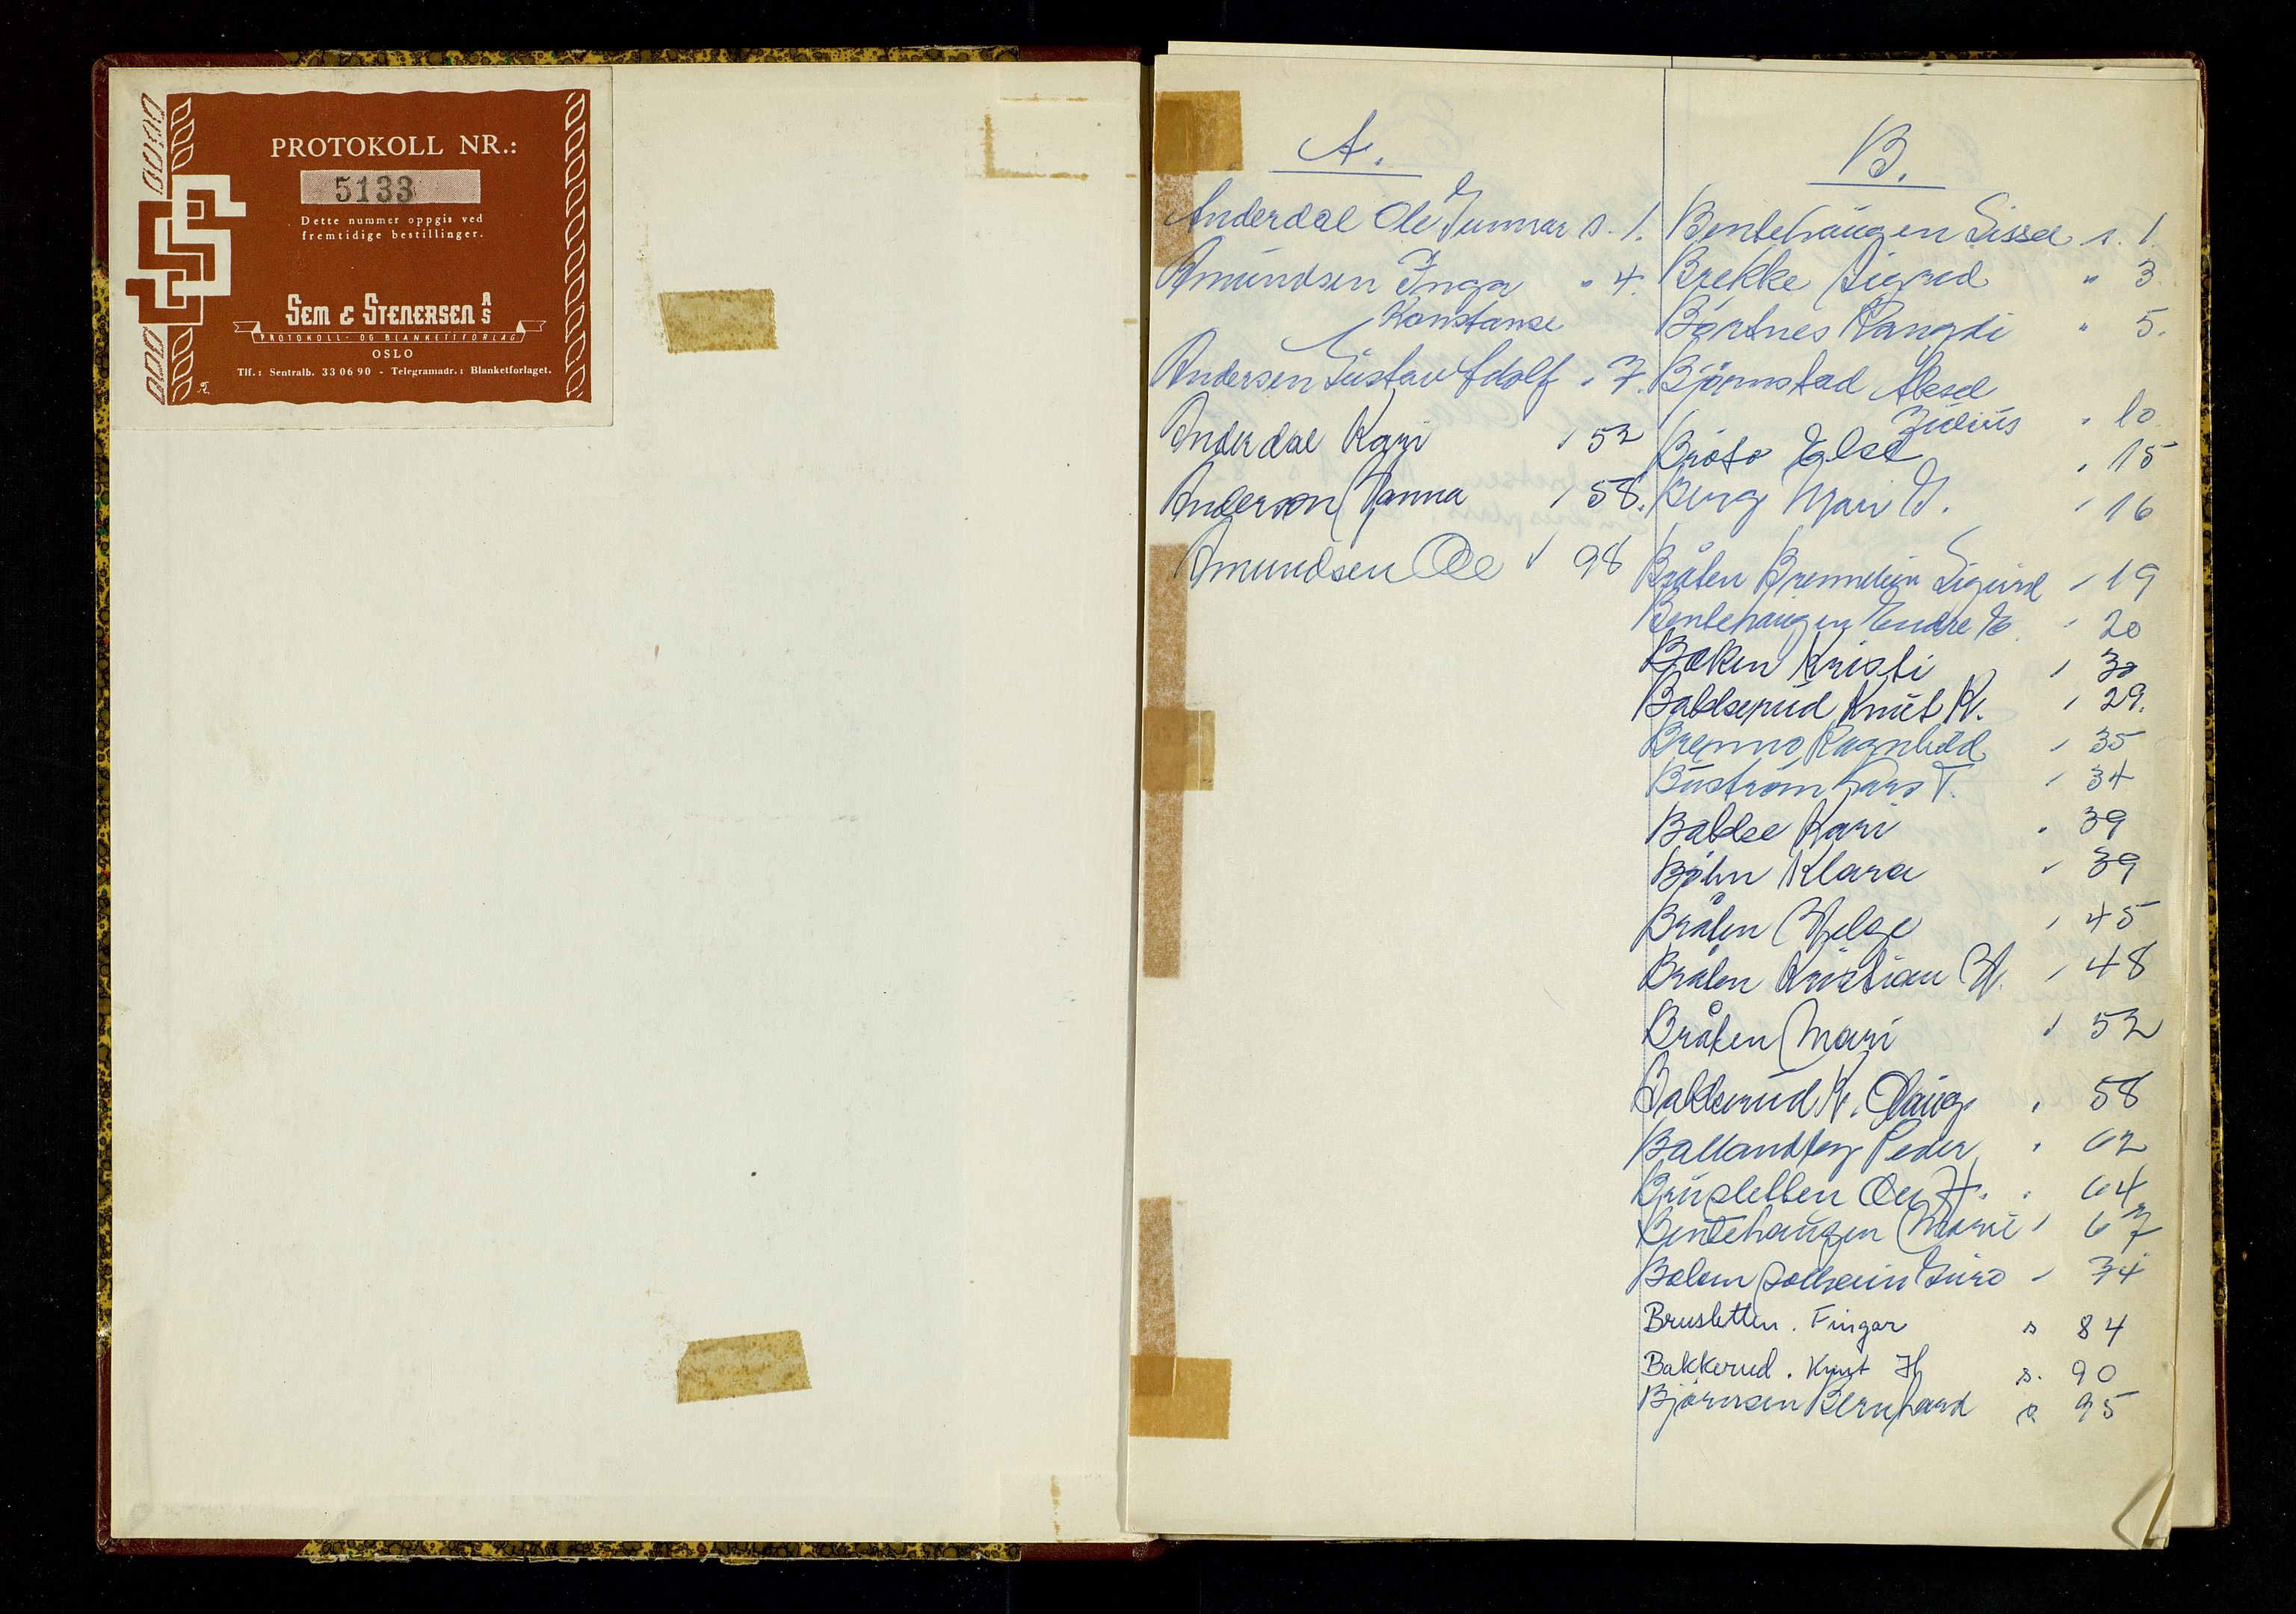 PROTOKOLL NR.:
5133
Dette nummer oppgis ved
fremtidige bestillinger.
SEM & STENERSEN A/S
PROTOKOLL- OG BLANKETTFORLAG
OSLO
Tlf.: Sentralb. 33 06 90 - Telegramadr.: Blanketforlaget.
A.
Anderdal Ole Gunnar s. 1.
Amundsen Inga " 4.
Konstanse
Andersen Gustav Adolf " 7.
Anderdal Kari " 52
Anderson Hanna " 58.
Amundsen Ole " 98
B.
Bentehaugen Sissel s. 1.
Brekke Sigrid " 3.
Bortnes Rangdi " 5.
Björnstad Aksel
Julius " 10
Bröto Else " 15
Berg Mari G. " 16
Bråten Brennelien Sigurd " 19
Bentehaugen Endre E " 20
Baken Kristi " 30
Bakkerud Knut K. " 29.
Brenno Ragnhild " 35
Buström Lars T. " 34
Bakke Kari " 39
Böhn Klara " 39
Bråten Helge " 45
Bråten Kristian H. " 48
Bråten Mari " 52
Bakkerud K. Olaug " 58
Ballandby Peder " 62
Brusletten Ole H. " 64
Bentehaugen Marie " 67
Bolum Solheim Guro " 74
Brusletten. Fingar s 84
Bakkerud. Knut H s. 90
Björnsen Bernhard s 95